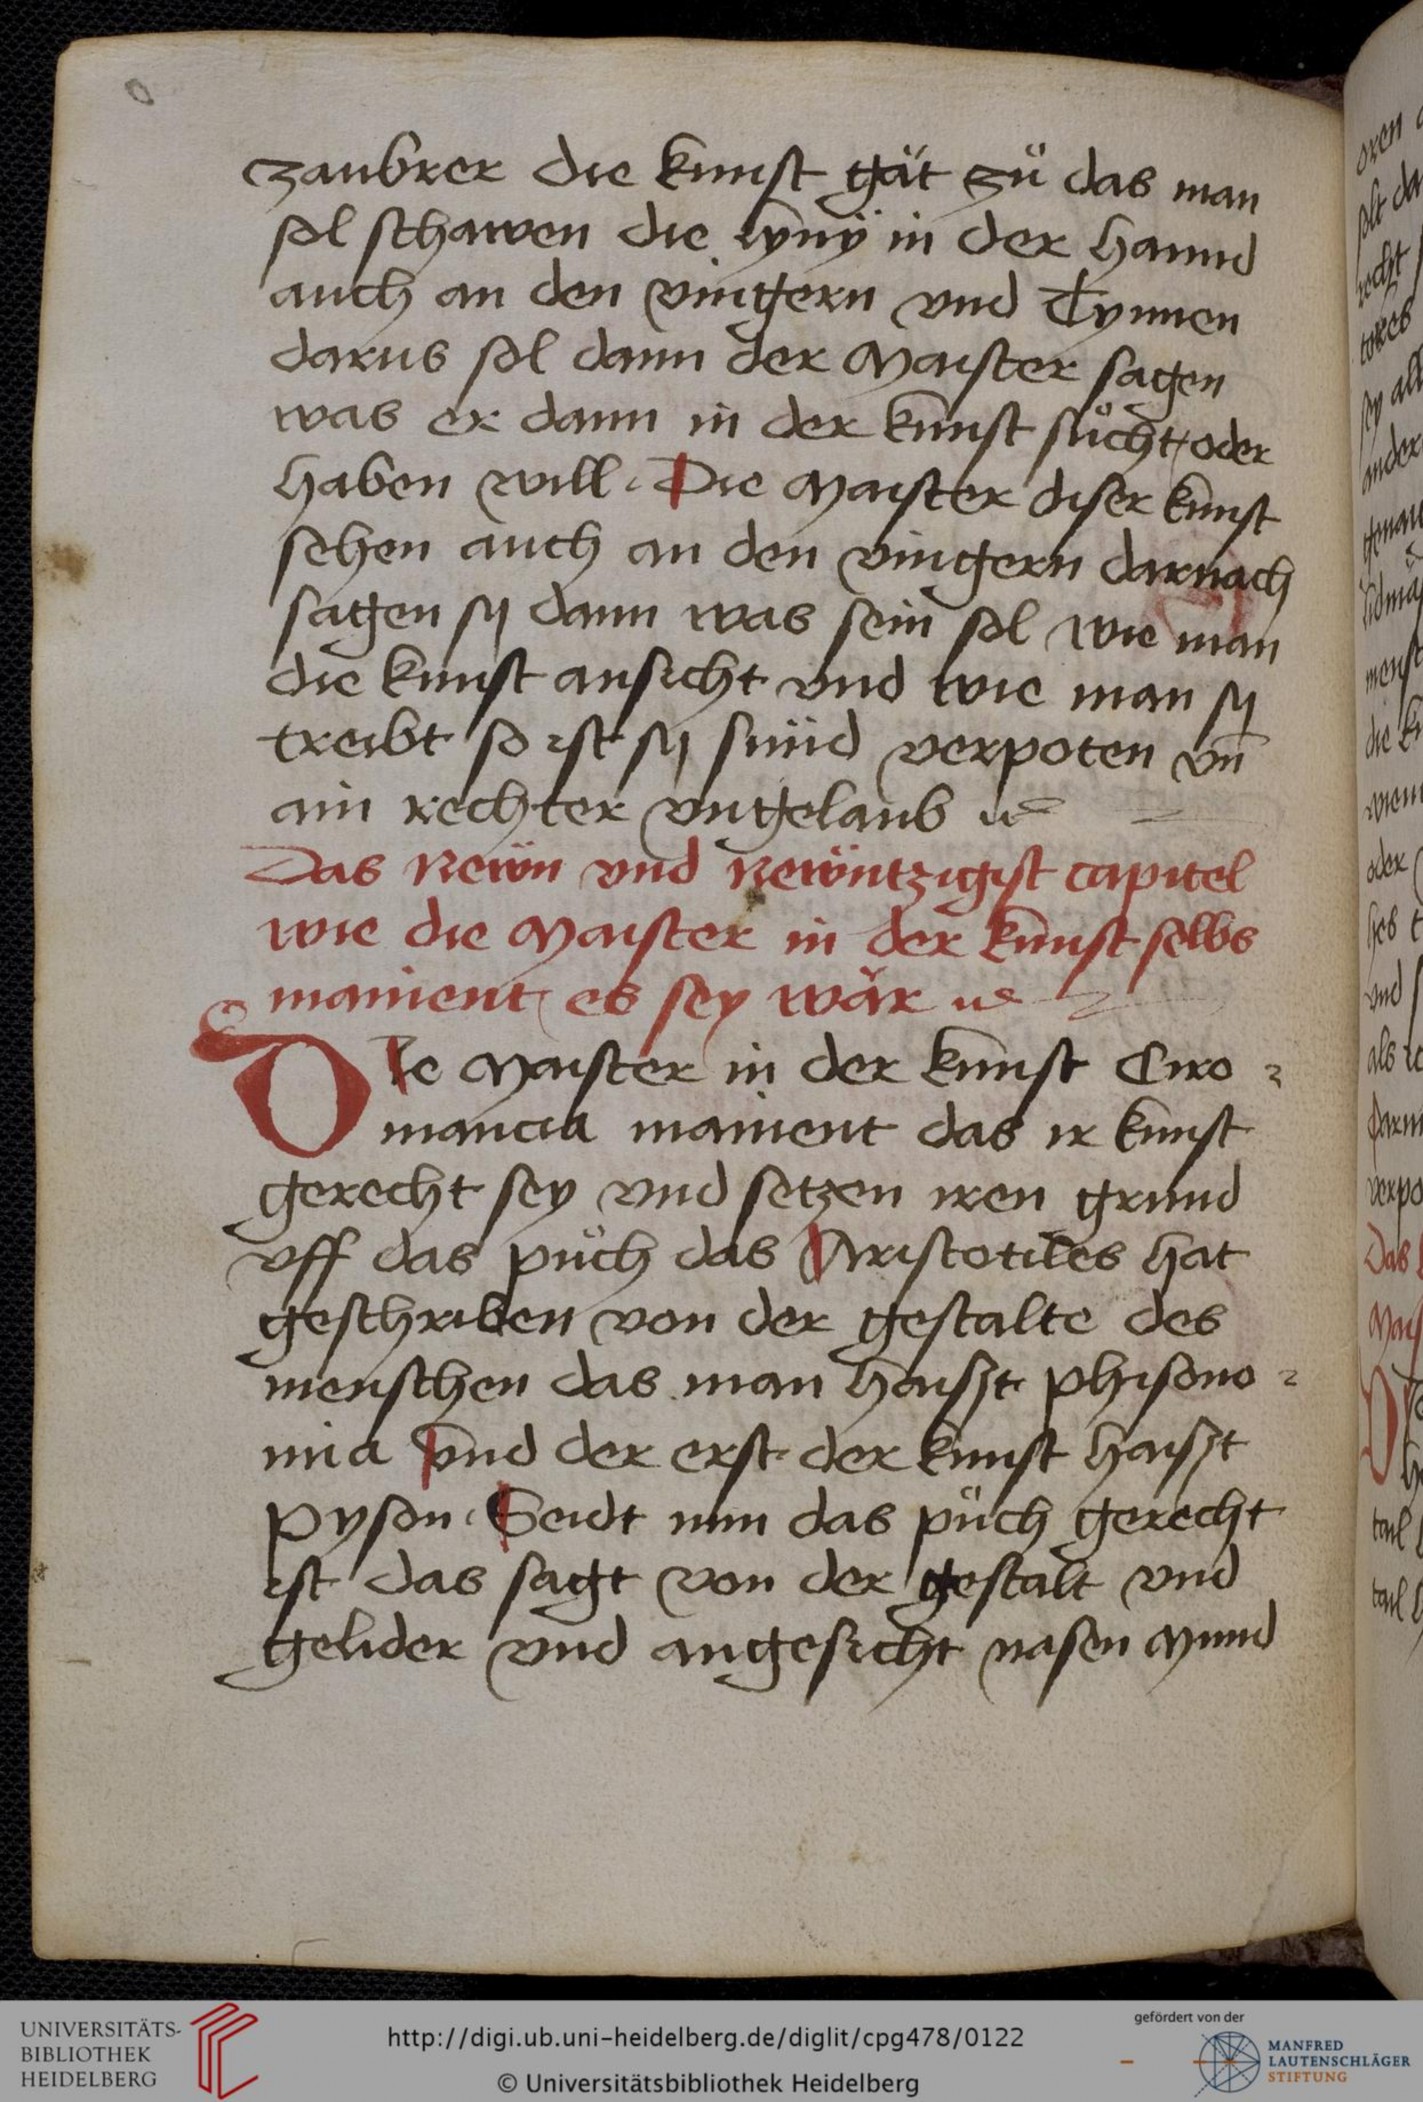 zaubrer die kunst gät zů das man
sol schawen die lynÿ in der hannd
auch an den vingern vnd Tynnen
darus sol dann der Maister sagen
was er dann in der kunst sůcht oder
haben will. Die Maister diser kunst
sehen auch an den vingern darnach
sagen sy dann was sein sol wie man
die kunst ansicht vnd wie man sy
treibt so ist sy sünd verpoten vn̄
ain rechter vngelaub
Das Newn vnd Newntzigist capitel
wie die Maister in der kunst selbs
mainent es sey wăr
Die Maister in der kunst Ciro-
mancia mainent das ir kunst
gerecht sey vnd setzen iren grund
vff das půch das Aristotiles hat
geschriben von der gestalte des
menschen das man haiszt phisono-
mia vnd der erst der kunst haiszt
Pyson. Seidt nun das půch gerecht
ist das sagt von der gestalt vnd
gelider vnd angesicht nasen Mund
oren
UNIVERSITÄTS-
BIBLIOTHEK
HEIDELBERG
http://digi.ub.uni-heidelberg.de/diglit/cpg478/0122
© Universitätsbibliothek Heidelberg
gefördert von der
MANFRED
LAUTENSCHLÄGER
STIFTUNG